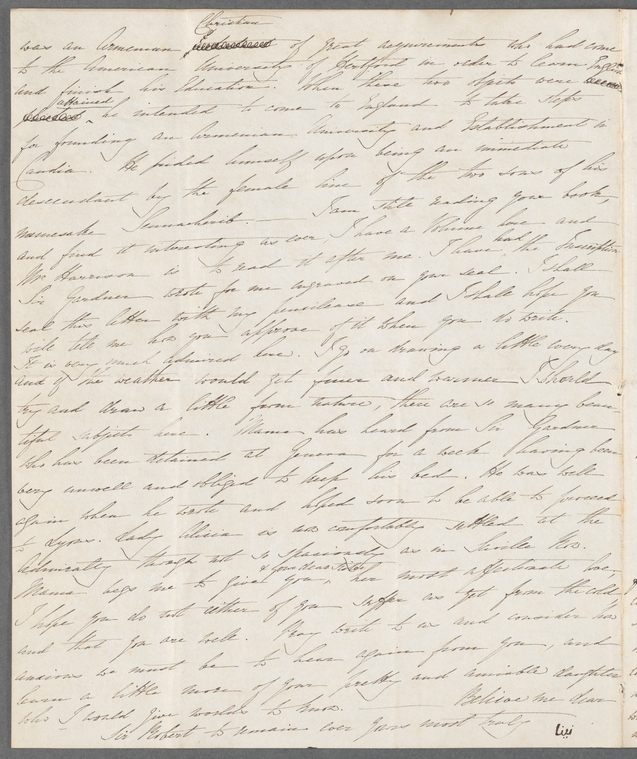 Christian
was an Armenian of great acquirements who had come
to the American University of Hertford in order to learn English
and finish his Education. When these two objects were
attained he intended to come to England to take steps
for founding an Armenian University and Establishment in
Candia. He prided himself upon being an immediate
descendant by the female line of the two sons of his
namesake Sennacherib. I am still reading your book,
and find it interesting as ever, I have a Volume here and
Mr. Harrison is to read it after me. I have had the Inscription
Sir Gardner wrote for me engraved on your seal. I shall
seal this letter with my pencilcase and I shall hope you
will tell me how you approve of it when you do write.
It is very much admired here. I go on drawing a little every day
and if the weather would get finer and warmer I should
try and draw a little from nature, there are so many beau-
tiful subjects here. Mama has heard from Sir Gardner
who has been detained at Geneva for a week having been
very unwell and obliged to keep his bed. He was well
again when he wrote and hoped soon to be able to proceed
to Lyons. Lady Alicia is as comfortably settled at the
Admiralty though not so spaciously as in Saville Row.
Mama begs me to give you, & your dear Sister her most affectionate love,
I hope you do not either of you suffer as yet from the cold
and that you are well. Pray write to us and consider how
anxious we must be to hear again from you, and
learn a little more of your pretty and amiable daughter
who I would give worlds to know. Believe me dear
Sir Robert to remain ever yours most truly